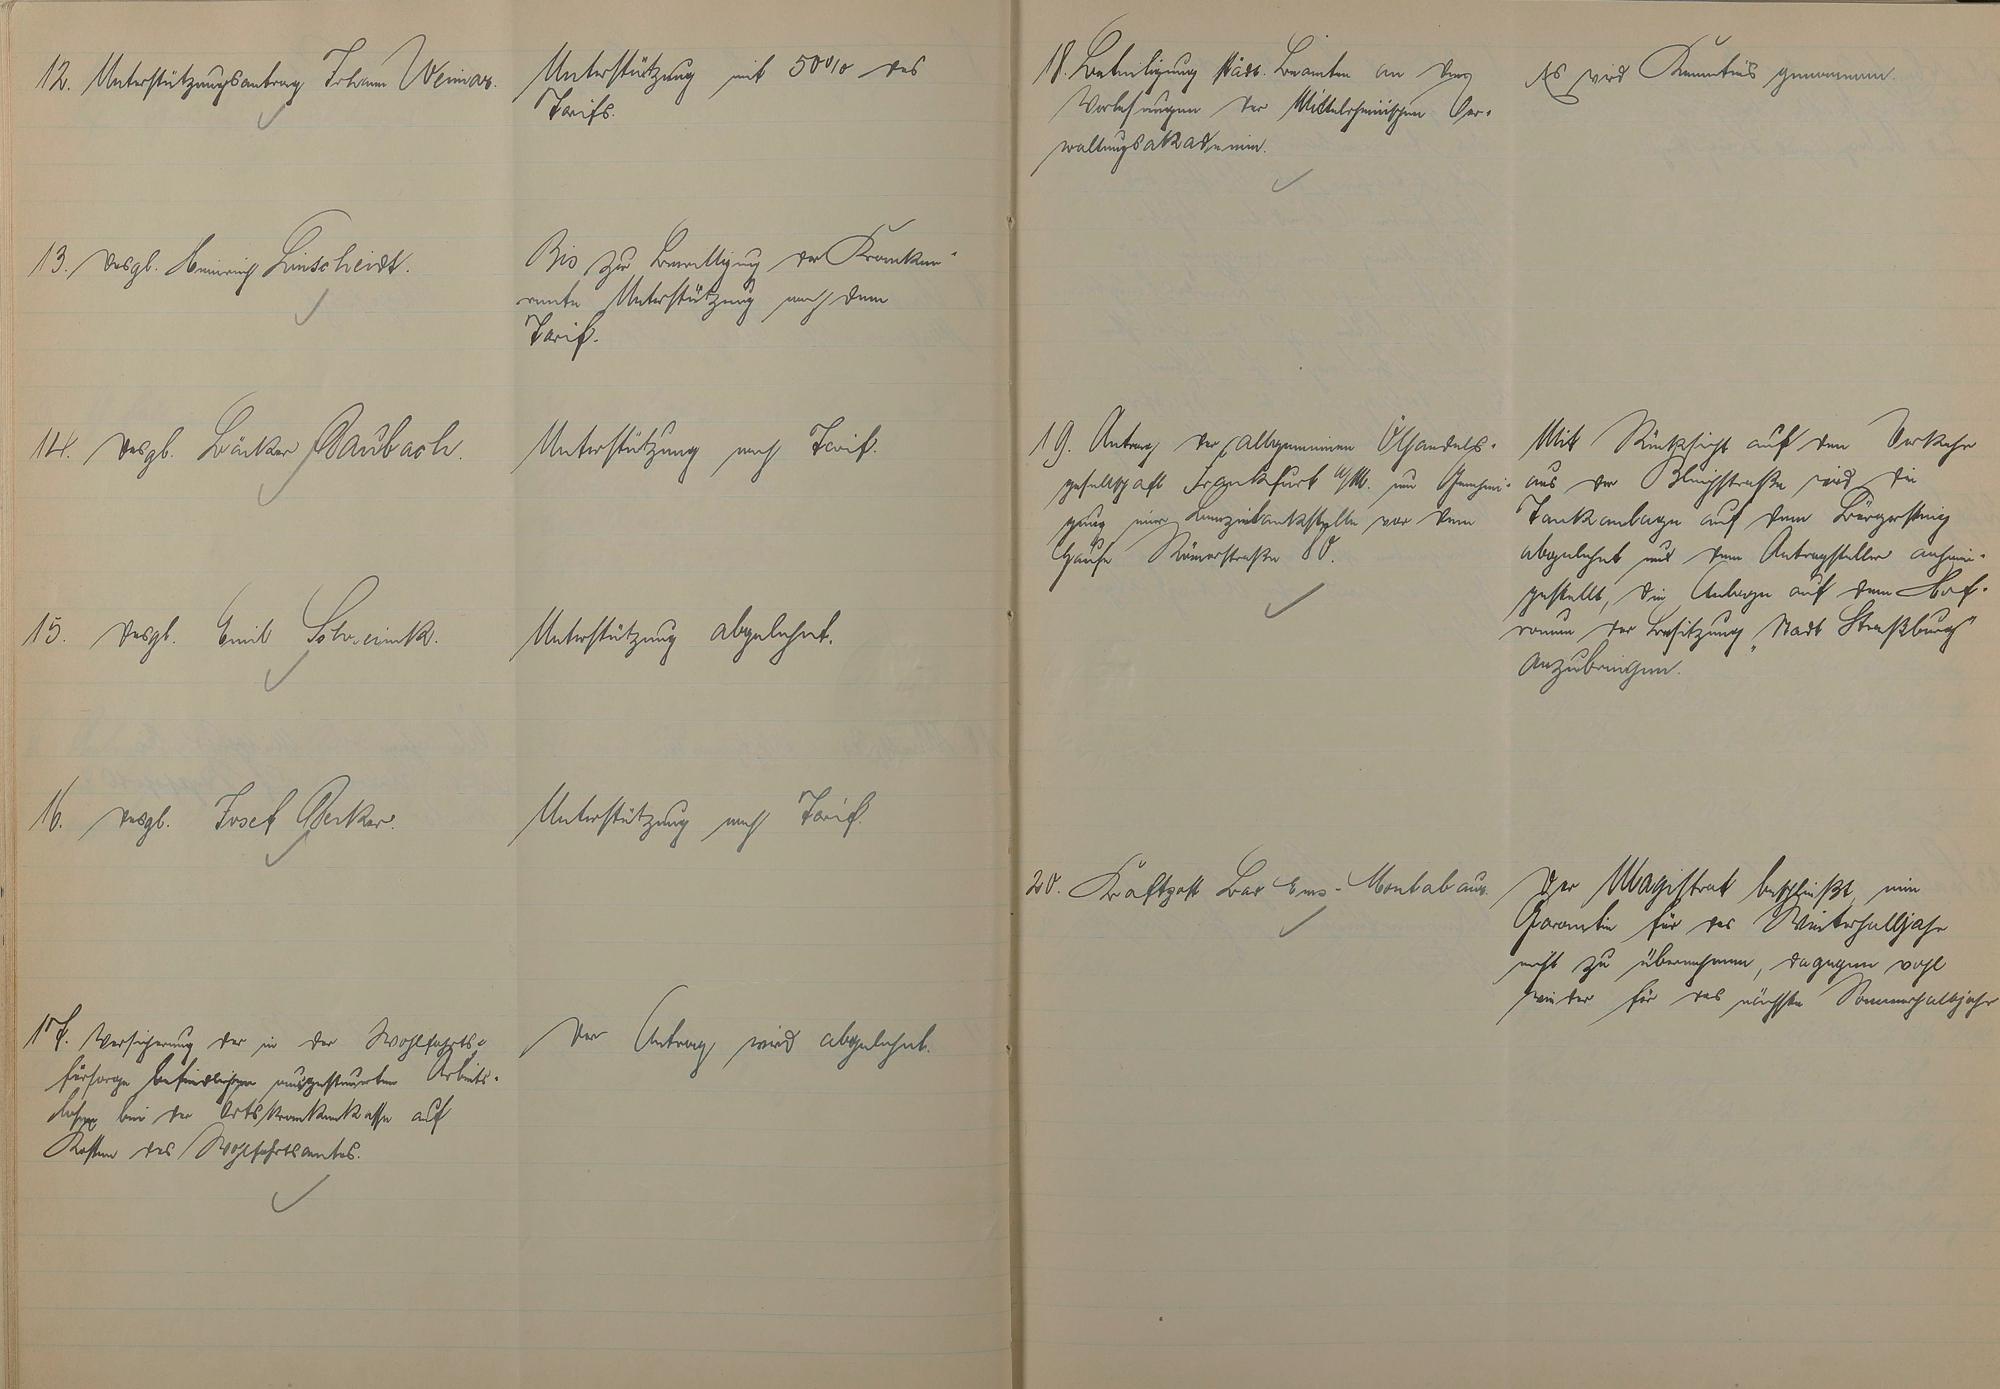 12. Unterstützungsantrag Johann Weimar.
Unterstützung mit 50% des
Tarifs.
13. desgl. Heinrich Linscheidt.
Bis zur Bewilligung der Kranken-
rente Unterstützung nach dem
Tarif.
14. desgl. Bäcker Paubach.
Unterstützung nach Tarif.
15. desgl. Emil
Unterstützung abgelehnt.
16. desgl. Josef Becker.
Unterstützung nach Tarif.
17. Versicherung der in der Wohlfahrts-
fürsorge befindlichen ausgesteuerten Arbeits-
losen bei der Ortskrankenkasse auf
Kosten des Wohlfahrtsamtes.
Der Antrag wird abgelehnt.
18. Beteiligung städt. Beamten an den
Vorlesungen der Mittelrheinischen Ver-
waltungsakademie.
Es wird Kenntnis genommen.
19. Antrag der allgemeinen Ölhandels-
gesellschaft Frankfurt a/M. um Genehmi-
gung einer Benzintankstelle vor dem
Hause Römerstraße 80.
Mit Rücksicht auf den Verkehr
aus der Bleichstraße wird die
Tankanlage auf dem Bürgersteig
abgelehnt und dem Antragsteller anheim-
gestellt, die Anlage auf dem Hof-
raum der Besitzung „Stadt Straßburg"
anzubringen.
20. Kraftpost Bad Ems-Montabaur.
Der Magistrat beschließt, eine
Garantie für das Winterhalbjahr
nicht zu übernehmen, dagegen wohl
wieder für das nächste Sommerhalbjahr